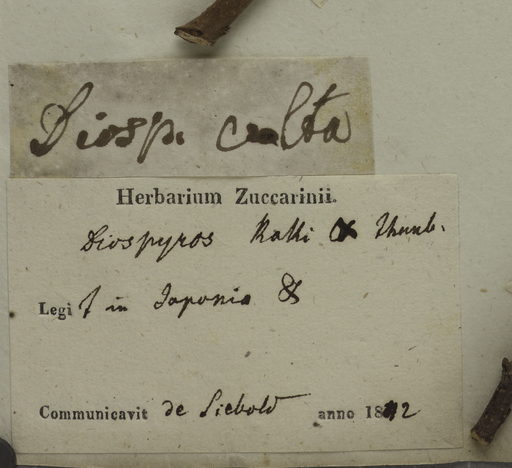 Diosp. culta
Herbarium Zuccarinii.
Diospyros Kakki Thunb.
Legit in Japonia
Communicavit de Siebold anno 1842